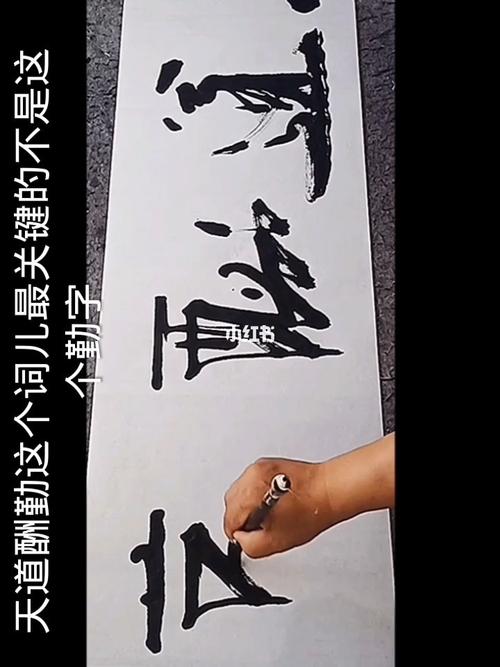 天道酬勤这个词儿最关键的不是这
个勤字
道酬
小红书